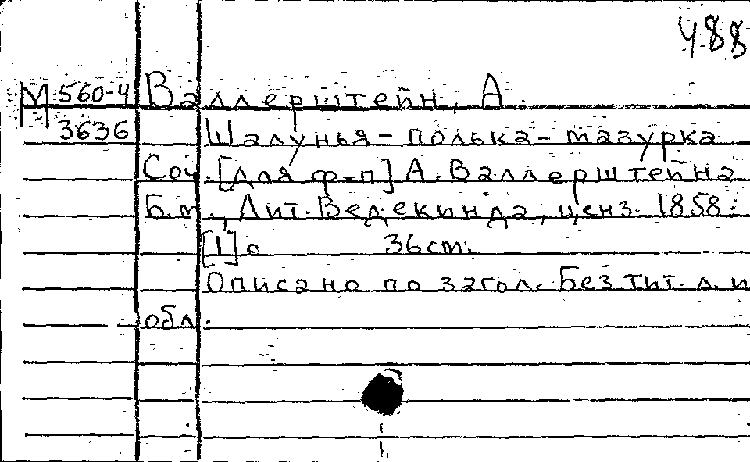 488
М 560-4 Валлерштейн, А.
3636 Шалунья-полька-мазурка
Соч. [для ф-п] А. Валлерштейна
Б.м., Лит. Ведекинда, ценз. 1858.
[1] с 36cm.
Описано по загол. Без тит. л. и
обл.